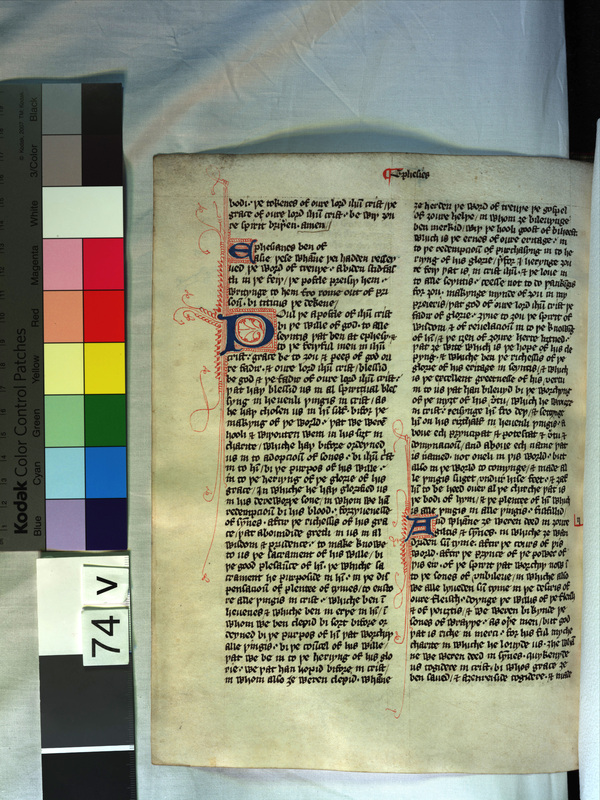 Ephesies
bodi· þe tokenes of oure lord ihū crist/ þe
grace of oure lord ihū crist· be wiþ ȝou
re spirit briþen· amen/
Ephesianes ben of
asie· þese whāne þei hadden resse
ued þe word of treuþe· abiden stidfast
li in þe feiþ/ þe postle preisiþ hem·
writynge to hem fro rome out of pri
soū· bi titicus þe dekene/
Poul þe apostle of ihū crist
bi þe wille of god· to alle
seyntis þat ben at ephesy
to þe feiþful men in ihū
crist· grace be to ȝou & pees of god ou
re fadir· & oure lord ihū crist/ blessid
be god & þe fadir of oure lord ihū crist·
þat haþ blessid us in al spiritual bles
syng in heuenli þingis in crist/ as
he haþ chosen us in hī silf· bifor þe
makyng of þe world· þat we were
hooli & wiþouten wem in his siȝt in
charite/ whiche haþ bifore ordeyned
us in to adopcioū of sones· bi ihū crist
in to hī/ bi þe purpos of his wille·
in to þe heriyng of þe glorie of his
grace/ In whiche he haþ glorified us
in his dereworþe sone· in whom we hā
redempcion bi his blood· forȝyuenesse
of synes· aftir þe richessis of his gra
ce/ þat aboundide greeth in us in al
wisdom & prudence· to make knowe
to us þe sacrament of his wille/ bi
þe good plesaūce of hī· þe whiche sa
crament he purposide in hī· in þe dis
pensacioū of plente of tymes/ to ensto
re alle þingis in crist· whiche ben ī
heuenes & whiche ben in erþe in hī/ ī
whom we ben clepid bi sort bifore or
deyned bi þe purpos of hī þat worchiþ
alle þingis· bi þe coūcel of his wille/
þat we be in to þe heriyng of his glo
rie· we þat han hopid bifore in crist/
in whom also ȝe weren clepid· whāne
ȝe herden þe word of treuþe þe gospel
of ȝoure helþe/ in whom ȝe bileuynge
ben merkid/ wiþ þe hooli goost of biheest·
which is þe ernes of oure eritage· in
to þe redempcioū of purchasyng in to he
riyng of his glorie/ þfor & heringe ȝou
re feiþ þat is in crist ihū· & þe loue in
to alle seyntis· ceesse not to do þankyngis
for ȝou· makynge mynde of ȝou in my
preieris/ þat god of oure lord ihū crist þe
fadir of glorie· ȝyue to ȝou þe spirit of
wisdom & of reuelacioū in to þe knowīg
of hī/ & þe iȝen of ȝoure herte liȝtned·
þat ȝe wite which is þe hope of his cle
pyng· & whiche ben þe richessis of þe
glorie of his eritage in seyntis/ & which
is þe excellent greetnesse of his vertu
in to us þat han bileeued bi þe worchyng
of þe myȝt of his vtu/ which he wrouȝt
in crist· reisinge hī fro deþ/ & settynge
hī on his riȝthalf in heuenli þingis· a
boue ech pryncipat & potestat & vtu &
domynacioū/ and aboue ech name þat
is named· not oneli in þis world· but
also in þe world to comynge/ & made al
le þingis suget· vndur hise feet· & ȝaf
hī to be heed ouer al þe chirche· þat is
þe bodi of hym/ & þe plentee of hī which
is alle þingis in alle þingis fulfillid/
And whāne ȝe weren deed in ȝoure
giltis & synnes· in whiche ȝe wan
driden sūtyme· aftir þe cours of þis
world· aftir þe prynce of þe power of
þis eir· of þe spirit þat worchiþ now ī
to þe sones of vnbileue/ in whiche also
we alle lyueden sūtyme in þe desiris of
oure fleisch· doynge þe willis of þe fleisch
& of þouȝtis/ & we weren bi kynde þe
sones of wraþþe· as oþer men/ but god
þat is riche in merci· for his ful myche
charite in whiche he louyde us· ȝhe whā
ne we weren deed in synes· quykenyde
us togidere in crist· bi whos grace ȝe
ben saued/ & aȝenreiside togidere· & made
Kodak Color Control Patches
© Kodak, 2007
Blue
Cyan
Green
Yellow
Red
Magenta
White
3/Color
Black
74 v